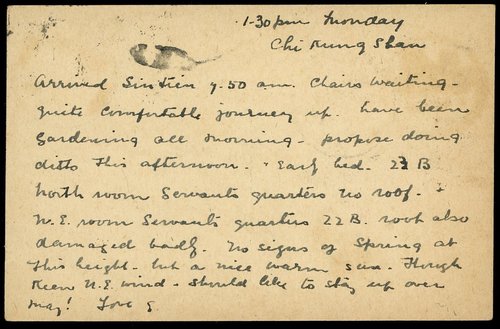 1-30 pm Monday
Chi Kung Shan
Arrived Sintien 7.50 am. Chairs waiting -
quite comfortable journey up. have been
gardening all morning - propose doing
ditto this afternoon. Early bed. 23 B
North room Servants quarters no roof. +
N.E. room Servants quarters 22 B. roof also
damaged badly. No signs of Spring at
this height - but a nice warm sun. Though
keen N.E. wind - should like to stay up over
May! Love